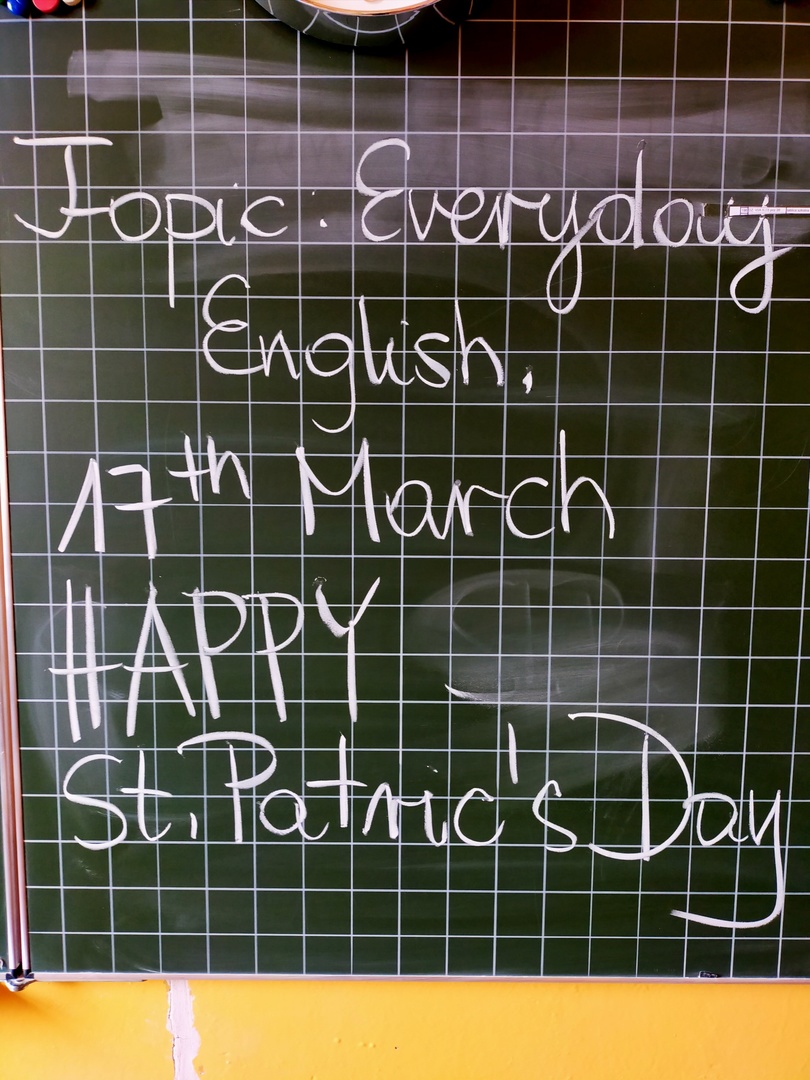 Topic: Everyday
English.
17th March
HAPPY
St. Patric's Day